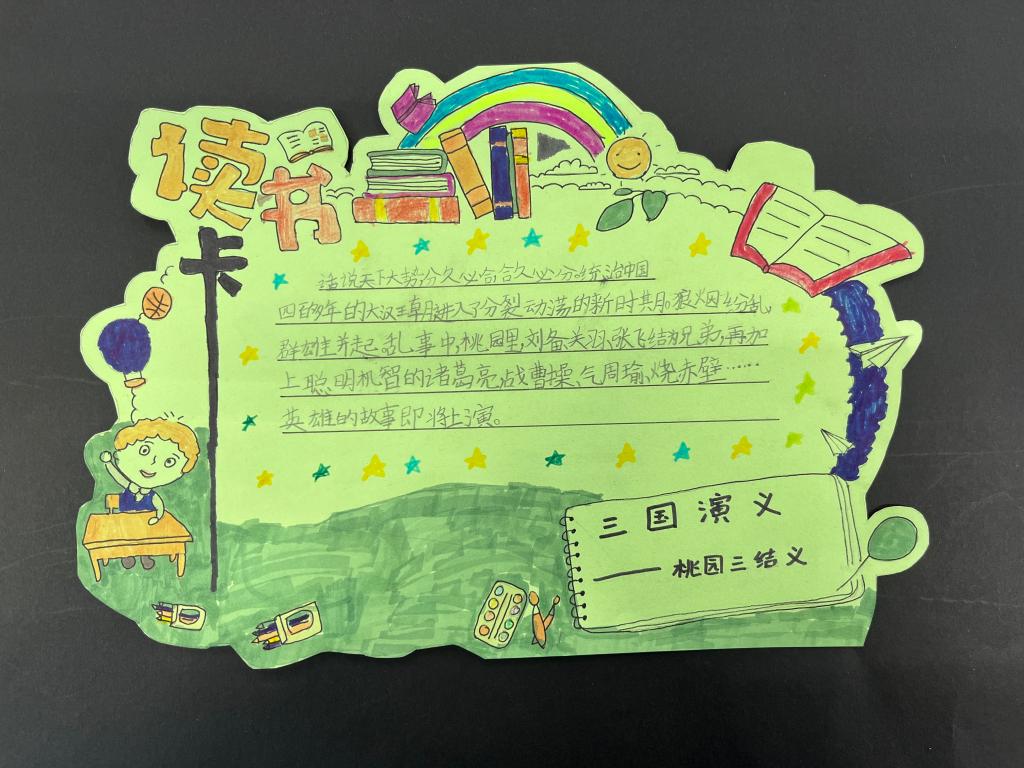 读书
卡
话说天下大势分久必合合久必分。统治中国
四百多年的大汉王朝进入了分裂动荡的新时期。狼烟纷乱,
群雄并起,乱事中,桃园里,刘备、关羽、张飞结义兄弟,再加
上聪明机智的诸葛亮,战曹操、气周瑜、烧赤壁……
英雄的故事即将上演。
三国演义
——桃园三结义